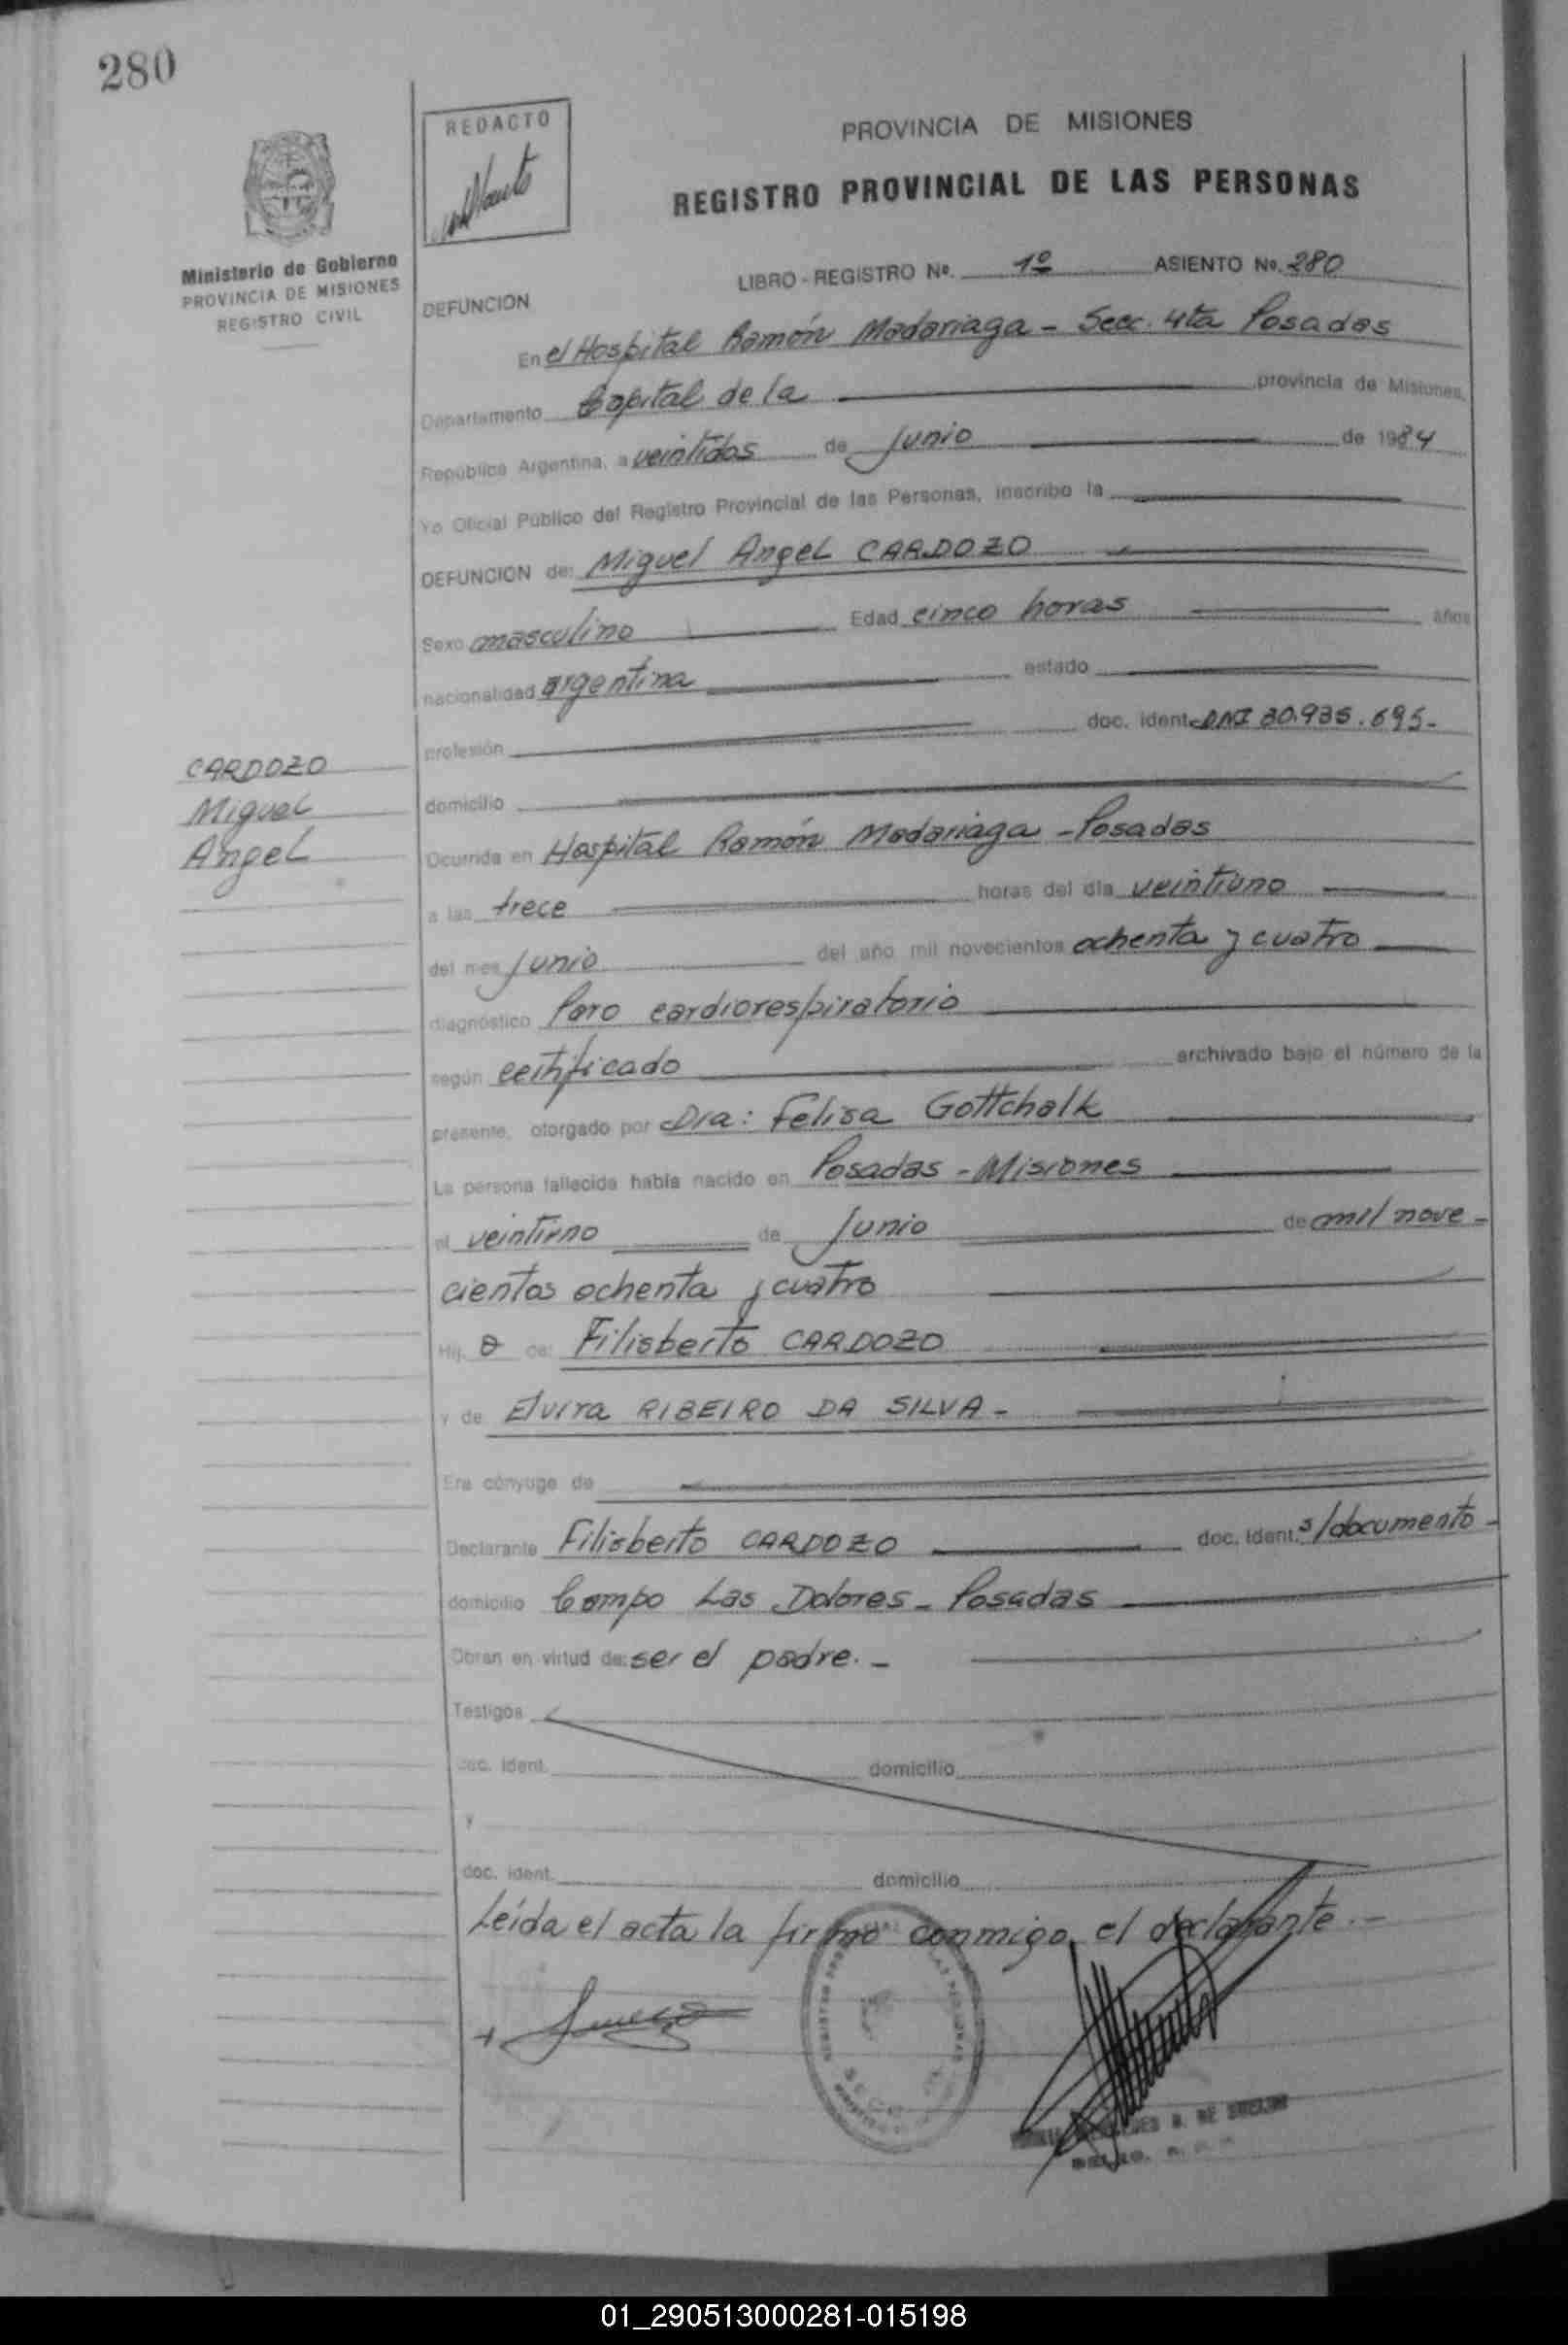 280
REDACTO
PROVINCIA DE MISIONES
REGISTRO PROVINCIAL DE LAS PERSONAS
Ministerio de Gobierno
PROVINCIA DE MISIONES
REGISTRO CIVIL
LIBRO - REGISTRO No. 1º ASIENTO No. 280
DEFUNCION
En el Hospital Ramón Madariaga - Secc. 4ta Posadas
Departamento Capital de la provincia de Misiones,
República Argentina, a veintidos de Junio de 1984
Yo Oficial Público del Registro Provincial de las Personas, inscribo la
DEFUNCION de: Miguel Angel CARDOZO
Sexo masculino Edad cinco horas años
nacionalidad argentina estado
profesión doc. ident. DNI 30.935.695.-
CARDOZO
Miguel
Angel
domicilio
Ocurrida en Hospital Ramón Madariaga - Posadas
a las trece horas del día veintiuno
del mes Junio del año mil novecientos ochenta y cuatro
diagnóstico Paro cardiorespiratorio
según certificado archivado bajo el número de la
presente, otorgado por Dra: Felisa Gottchalk
La persona fallecida había nacido en Posadas - Misiones
el veintiuno de Junio de mil nove-
cientos ochenta y cuatro
Hij o de: Filisberto CARDOZO
y de Elvira RIBEIRO DA SILVA -
Era cónyuge de
Declarante Filisberto CARDOZO doc. ident. s/documento -
domicilio Campo Las Dolores - Posadas
Obran en virtud de: ser el padre. -
Testigos
doc. ident. domicilio
y
doc. ident. domicilio
Leída el acta la firma conmigo, el declarante. -
01_290513000281-015198